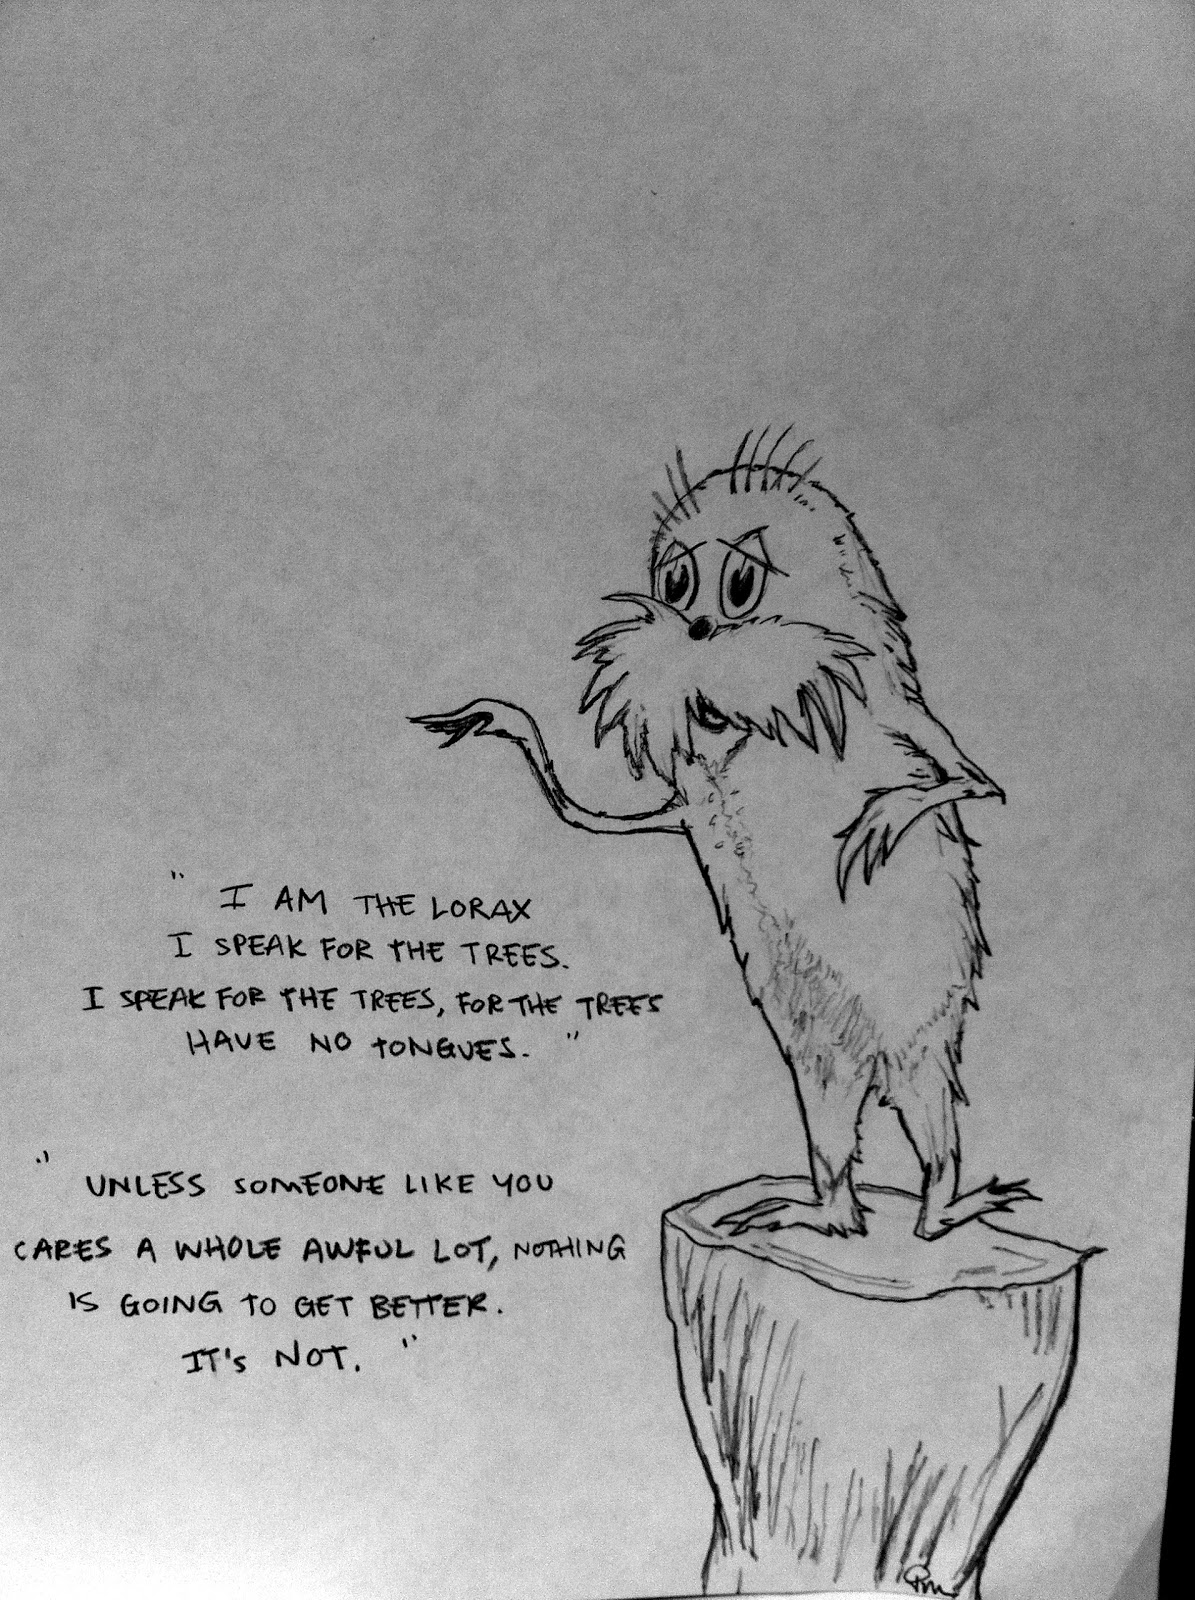 " I AM THE LORAX
I SPEAK FOR THE TREES.
I SPEAK FOR THE TREES, FOR THE TREES
HAVE NO TONGUES. "
" UNLESS SOMEONE LIKE YOU
CARES A WHOLE AWFUL LOT, NOTHING
IS GOING TO GET BETTER.
IT'S NOT. "